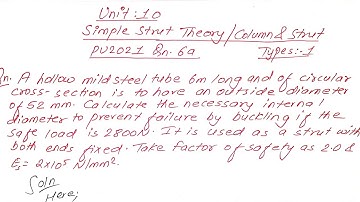 Unit:10
Simple Strut Theory/Column & Strut
PU2021 Qn.6a Types:-1
Qn. A hollow mild steel tube 6m long and of circular
cross-section is to have an outside diameter
of 52 mm. Calculate the necessary internal
diameter to prevent failure by buckling if the
safe load is 2800N. It is used as a strut with
both ends fixed. Take factor of safety as 2.0 &
Es = 2x10⁵ N/mm².
Soln
Here;